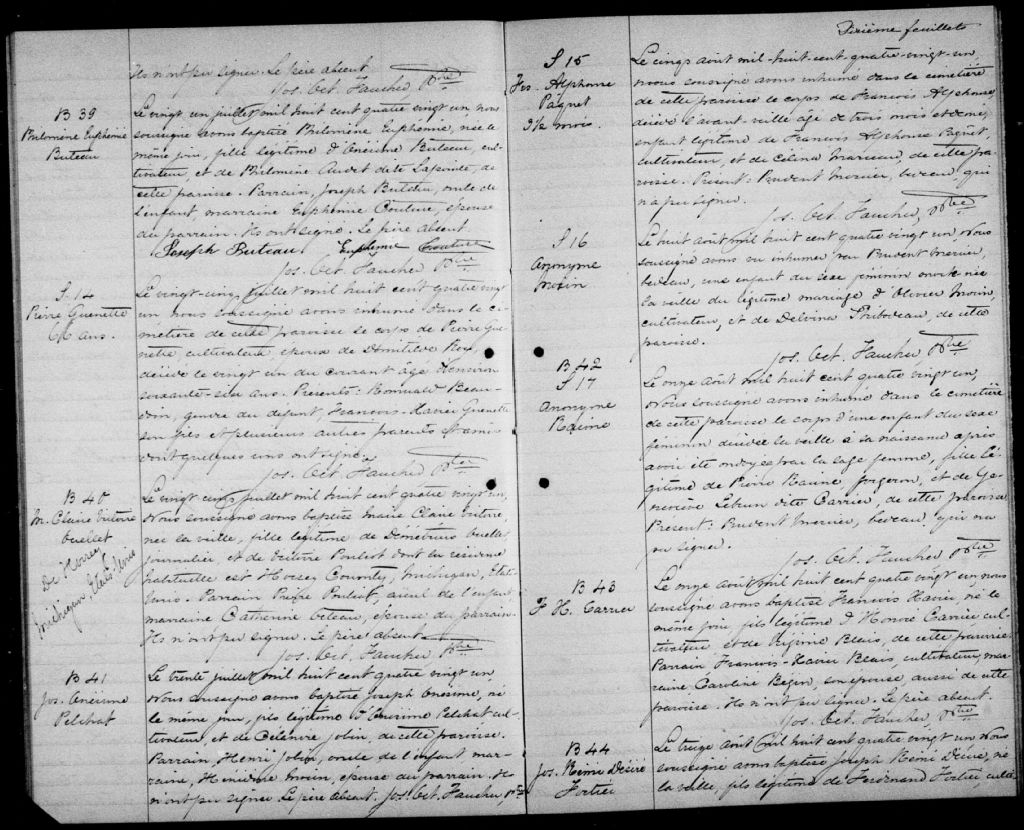 Ils n'ont pu signer. Le père absent
Jos. Oct. Faucher Ptre
B 39
Philomène Euphémie
Buteau
Le vingt un juillet mil huit cent quatre vingt un, nous
soussigné avons baptisé Philomène Euphémie, née le
même jour, fille légitime d'Onésime Buteau, cul-
tivateur, et de Philomène Audet dite Lapointe, de
cette paroisse. Parrain, Joseph Buteau, oncle de
l'enfant, marraine Euphémie Couture, épouse
du parrain. Ils ont signé. Le père absent.
Joseph Buteau Euphémie Couture
Jos. Oct. Faucher Ptre
S. 14
Pierre Guenette
66 ans.
Le vingt-cinq juillet mil huit cent quatre vingt
un nous soussigné avons inhumé dans le ci-
metière de cette paroisse le corps de Pierre Gue-
nette, cultivateur, époux de Domitilde Roy,
décédé le vingt un du courant agé d'environ
soixante-six ans. Présents: Romuald Beau-
doin, gendre du défunt, François-Xavier Guenette
son fils et plusieurs autres parents et amis
dont quelques uns ont signé.
Jos. Oct. Faucher Ptre
B 40
M. Claire Victoire
Ouellet
De
Michigan, Etats-Unis
Le vingt cinq juillet mil huit cent quatre vingt un,
Nous soussigné avons baptisé Marie Claire Victoire,
née la veille, fille légitime de Ouellet
journalier et de Victoire Pouliot dont la résidence
habituelle est County, Michigan, Etats-
Unis. Parrain Pierre Pouliot, aïeul de l'enfant,
marraine Catherine Biteau, épouse du parrain.
Ils n'ont pu signer. Le père absent
Jos. Oct. Faucher Ptre
B 41
Jos. Onésime
Pelchat
Le trente juillet mil huit cent quatre vingt un
Nous soussigné avons baptisé Joseph Onésime, né
le même jour, fils légitime d'Onésime Pelchat cul-
tivateur, et de Jolin, de cette paroisse.
Parrain, Henri Jolin, oncle de l'enfant mar-
raine, Morin, épouse du parrain. Ils
n'ont pu signer. Le père absent. Jos. Oct. Faucher, Ptre
feuillets
S 15
Frs. Alphonse
Paquet
3½ mois.
Le cinq août mil-huit-cent-quatre-vingt-un,
nous soussigné avons inhumé dans le cimetière
de cette paroisse le corps de François Alphonse
décédé l'avant-veille agé de trois mois et demi,
enfant légitime de François Alphonse Paquet,
cultivateur, et de Célina Marceau, de cette pa-
roisse. Présent: Prudent Mercier, bedeau qui
n'a pu signer.
Jos. Oct. Faucher, Ptre
S 16
Anonyme
Morin
Le huit août mil huit cent quatre vingt un, Nous
soussigné avons vu inhumer par Prudent Mercier,
bedeau, une enfant du sexe féminin morte née
la veille du légitime mariage d'Olivier Morin,
cultivateur, et de Delvina Thibodeau, de cette
paroisse.
Jos. Oct. Faucher Ptre
B 42
S 17
Anonyme
Racine
Le onze août mil huit cent quatre vingt un,
Nous soussigné avons inhumé dans le cimetière
de cette paroisse le corps d'une enfant du sexe
féminin décédée la veille à sa naissance après
avoir été ondoyée par la sage femme, fille lé-
gitime de Pierre Racine, forgeron, et de Ge-
neviève Lebrun dite Carrier, de cette paroisse
Présent: Prudent Mercier, bedeau qui n'a
pu signer.
Jos. Oct. Faucher Ptre
B 43
F. H. Carrier
Le onze août mil huit cent quatre vingt un nous
soussigné avons baptisé François Xavier, né le
même jour, fils légitime d'Honoré Carrier cul-
tivateur et de Blais, de cette paroisse.
Parrain François-Xavier Blais, cultivateur, mar-
raine Caroline Bégin, son épouse, aussi de cette
paroisse. Ils n'ont pu signer. Le père absent.
Jos. Oct. Faucher, Ptre
B 44
Jos. Rémi Désiré
Fortier
Le treize août mil huit cent quatre vingt un Nous
soussigné avons baptisé Joseph Rémi Désiré, né
la veille, fils légitime de Ferdinand Fortier, culti-